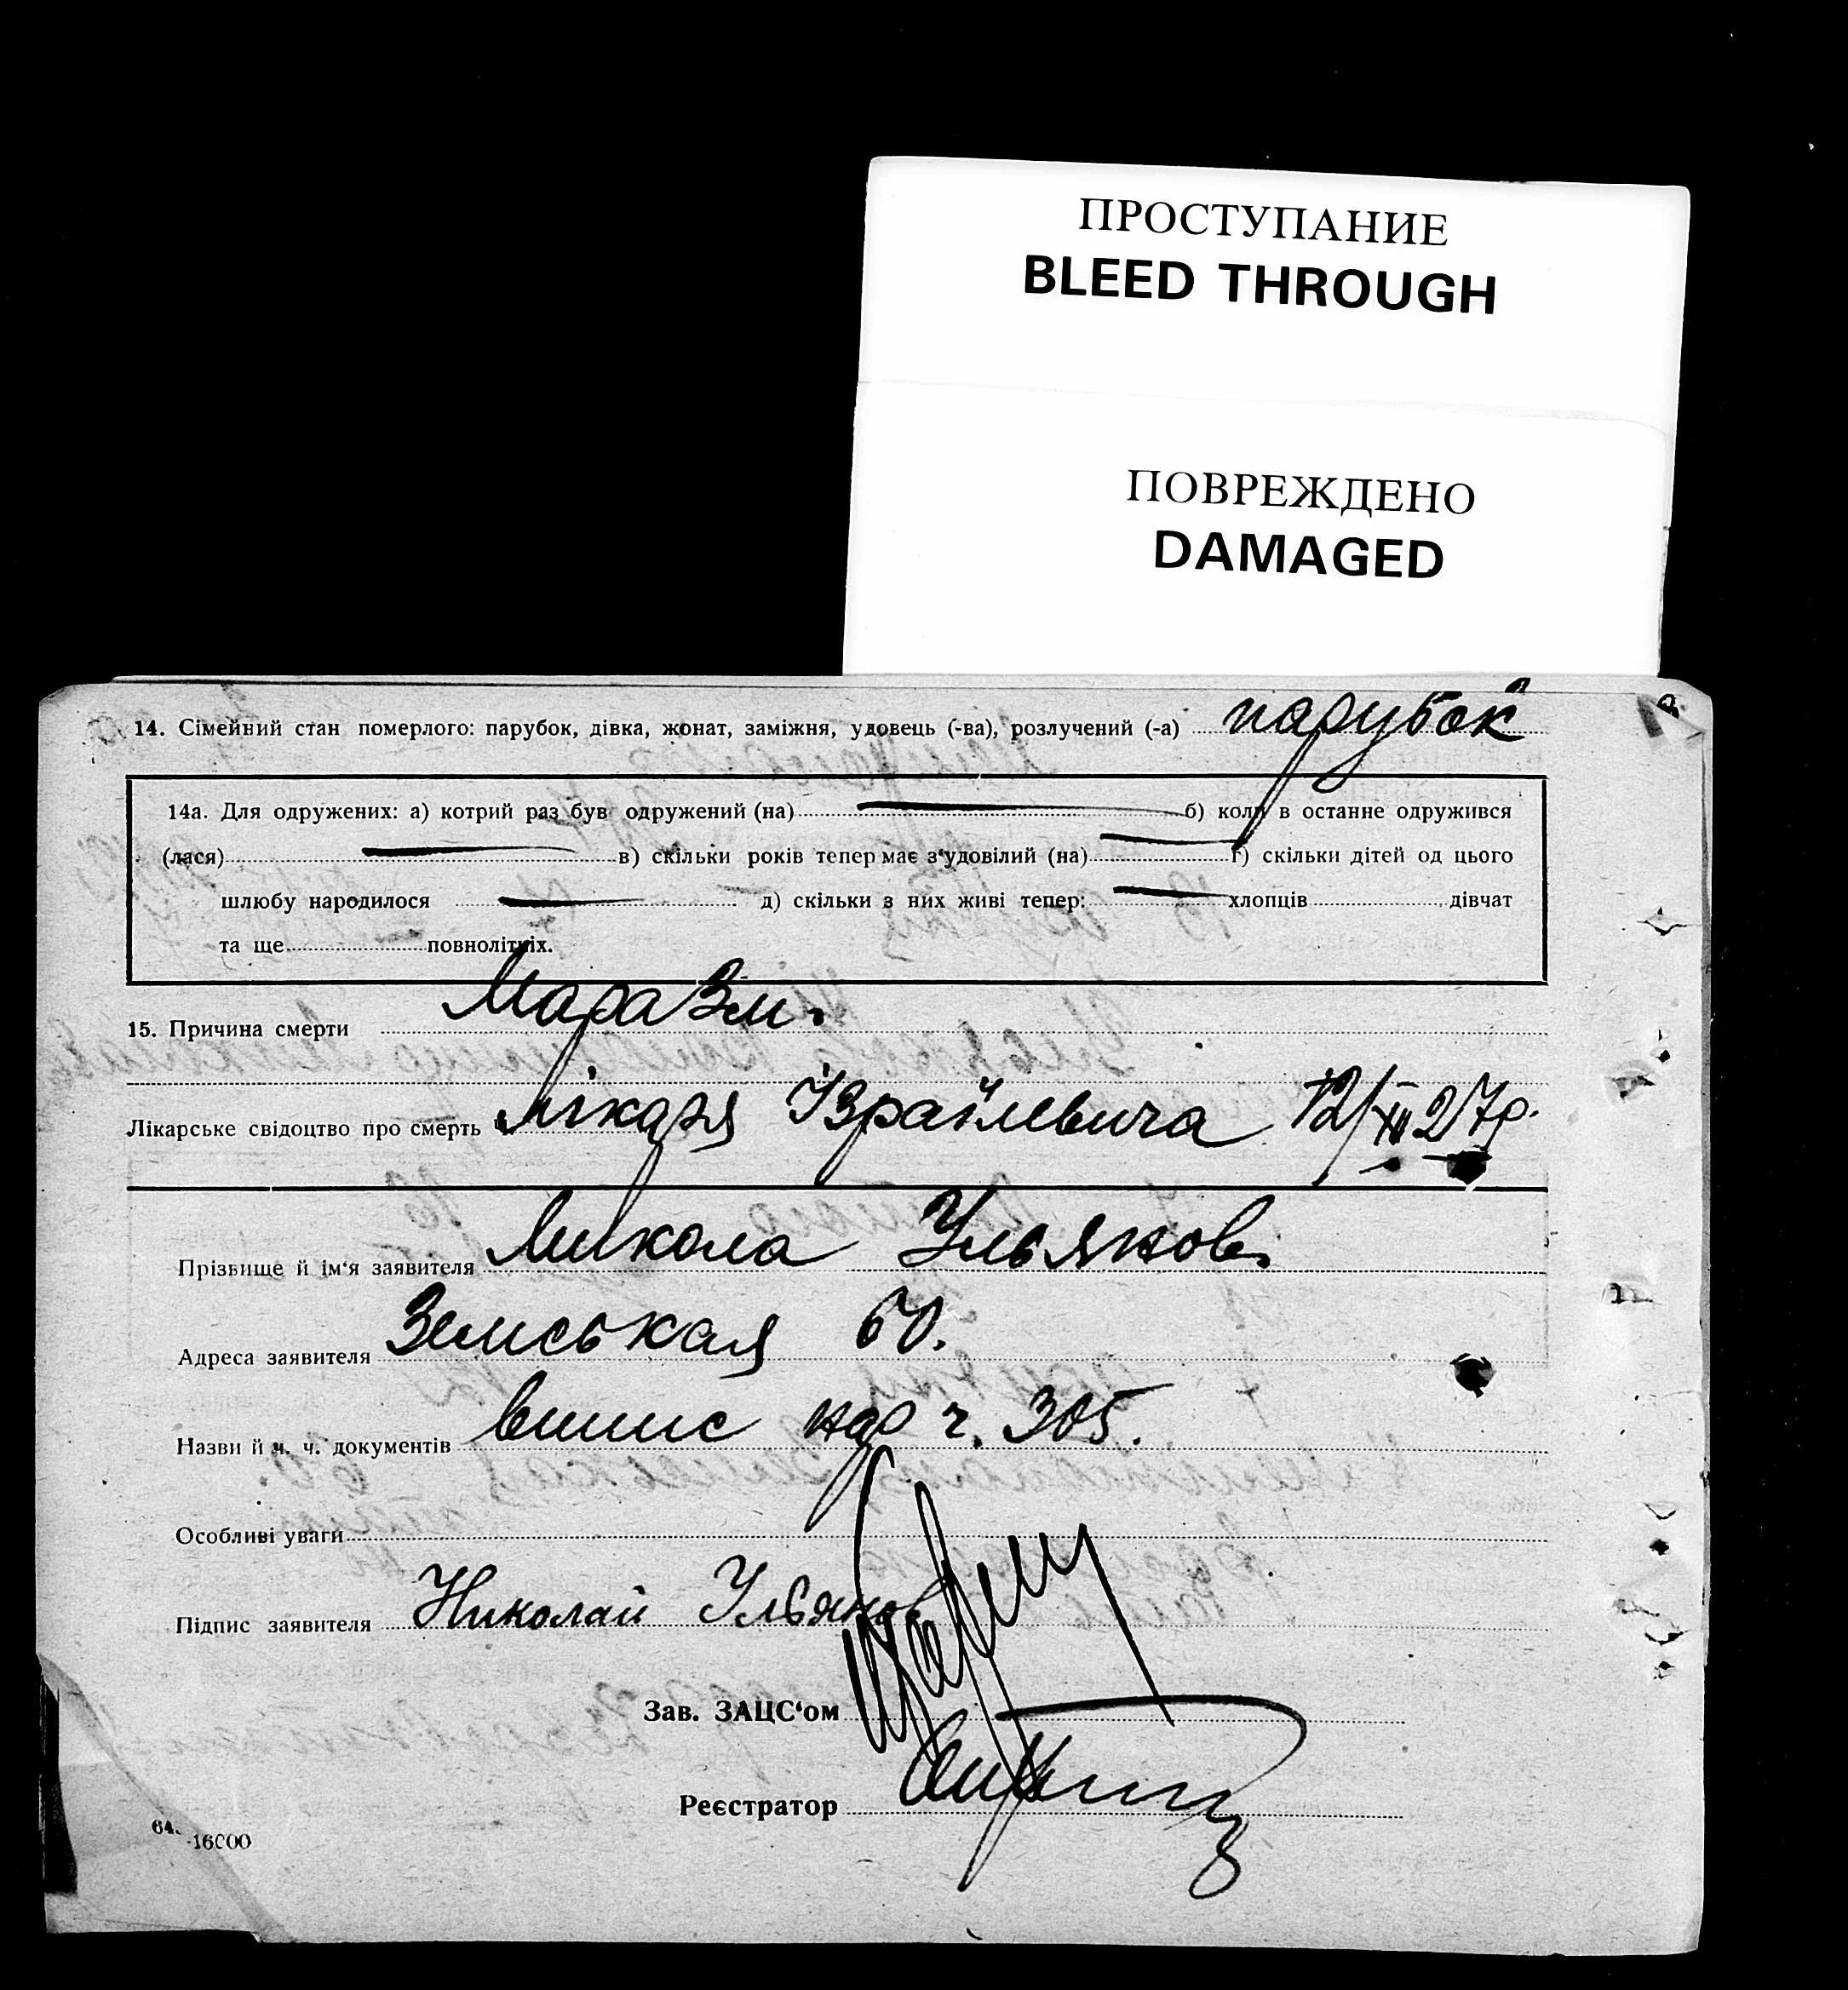 ПРОСТУПАНИЕ
BLEED THROUGH
ПОВРЕЖДЕНО
DAMAGED
14. Сімейний стан померлого: парубок, дівка, жонат, заміжня, удовець (-ва), розлучений (-а) парубок
14а. Для одружених: а) котрий раз був одружений (на) б) коли в останнє одружився
(лася) в) скільки років тепер має з'удовілий (на) г) скільки дітей од цього
шлюбу народилося д) скільки з них живі тепер: хлопців дівчат
та ще повнолітніх.
15. Причина смерти Маразм.
Лікарське свідоцтво про смерть лікаря Ізраілевича 12/XII 27р.
Прізвище й ім'я заявителя Микола Ульянов.
Адреса заявителя Земськая 60.
Назви й ч. ч. документів випис нар ч. 305.
Особливі уваги
Підпис заявителя Николай Ульянов
Зав. ЗАЦС'ом
Реєстратор
64. -16000